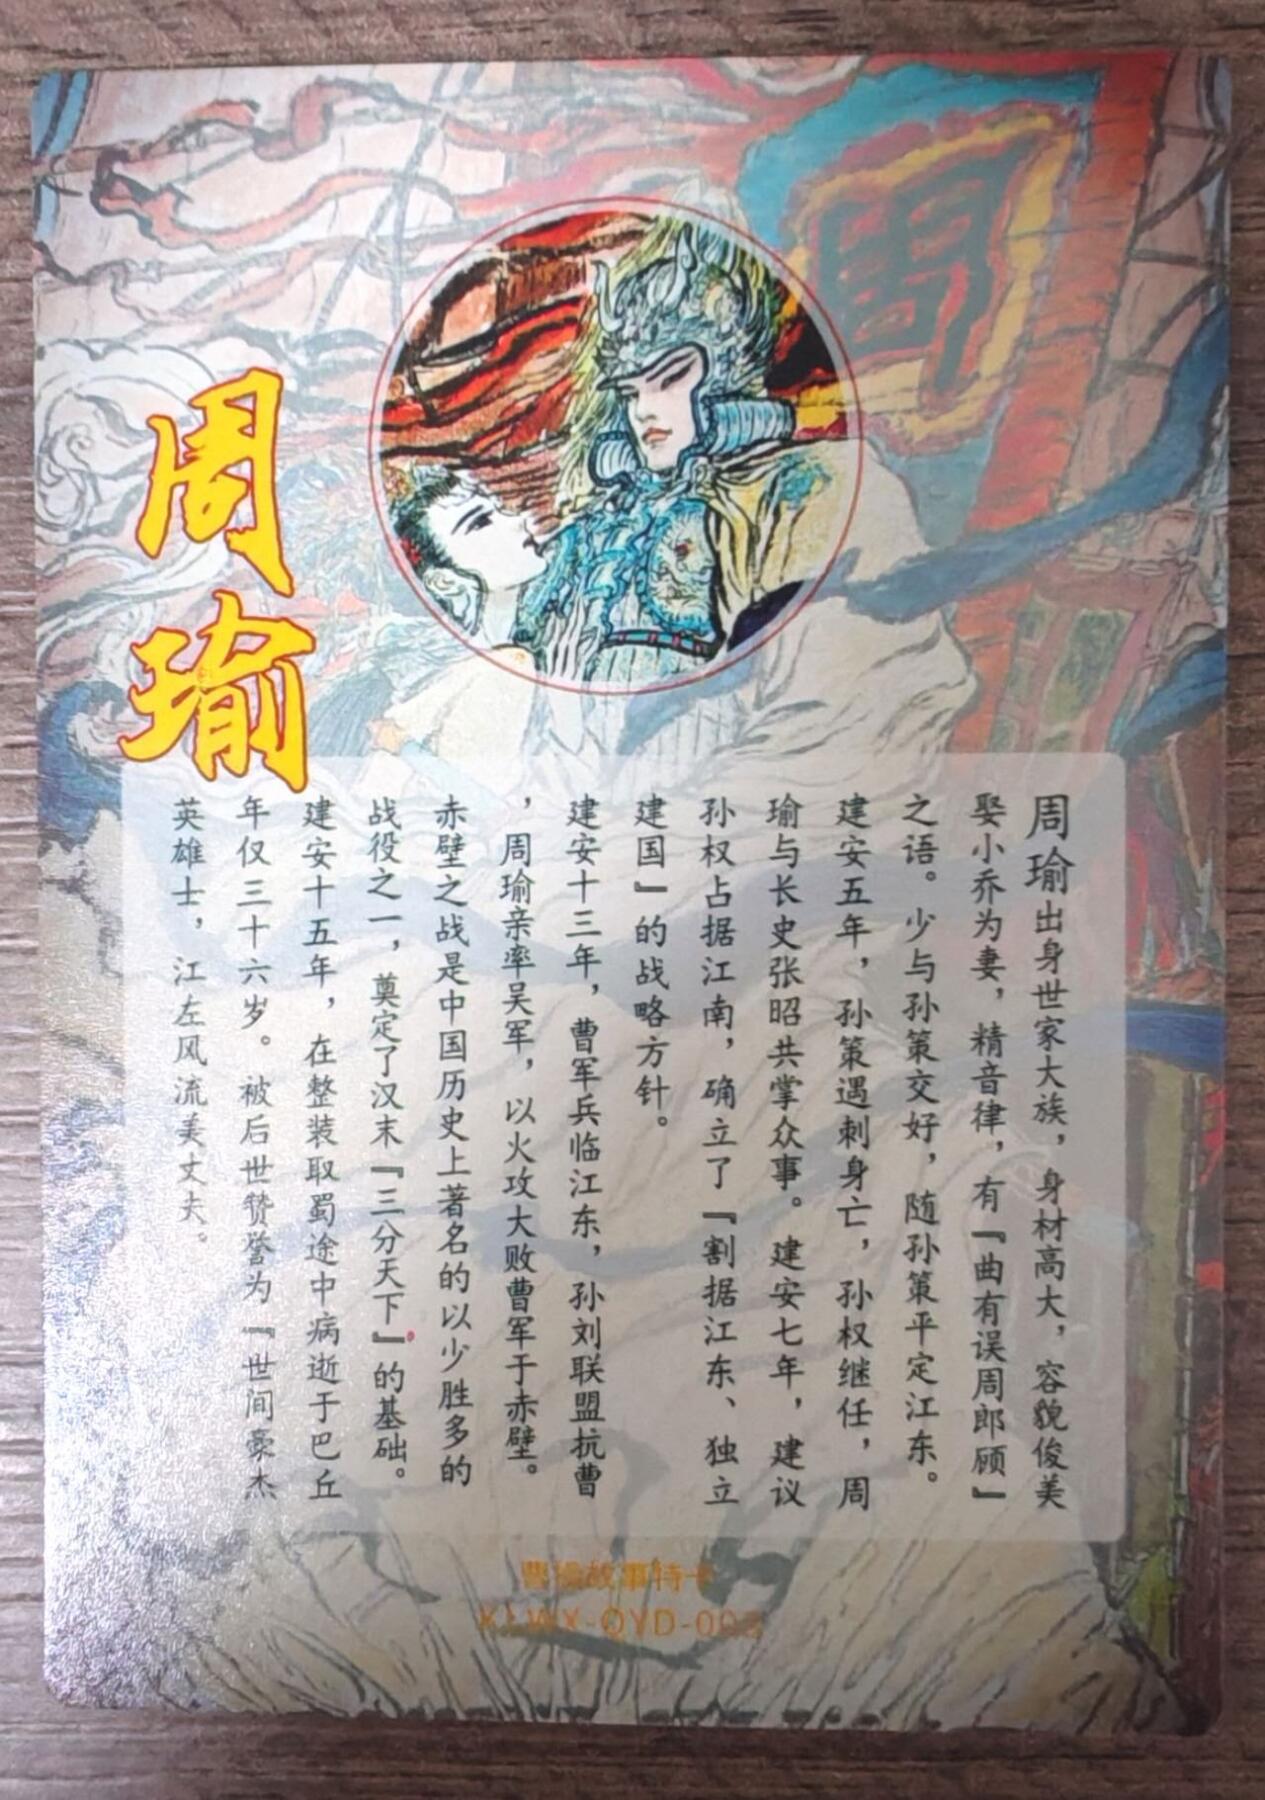 周
周瑜
周瑜出身世家大族，身材高大，容貌俊美
娶小乔为妻，精音律，有『曲有误周郎顾』
之语。少与孙策交好，随孙策平定江东。
建安五年，孙策遇刺身亡，孙权继任，周
瑜与长史张昭共掌众事。建安七年，建议
孙权占据江南，确立了『割据江东、独立
建国』的战略方针。
建安十三年，曹军兵临江东，孙刘联盟抗曹
，周瑜亲率吴军，以火攻大败曹军于赤壁。
赤壁之战是中国历史上著名的以少胜多的
战役之一，奠定了汉末『三分天下』的基础。
建安十五年，在整装取蜀途中病逝于巴丘
年仅三十六岁。被后世赞誉为『世间豪杰
英雄士，江左风流美丈夫。
故事特卡
KLWX-QYD-003